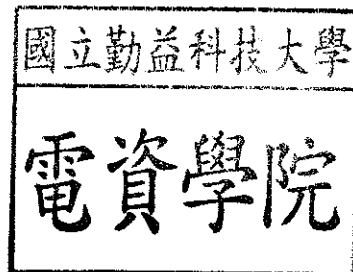 國立勤益科技大學
電資學院